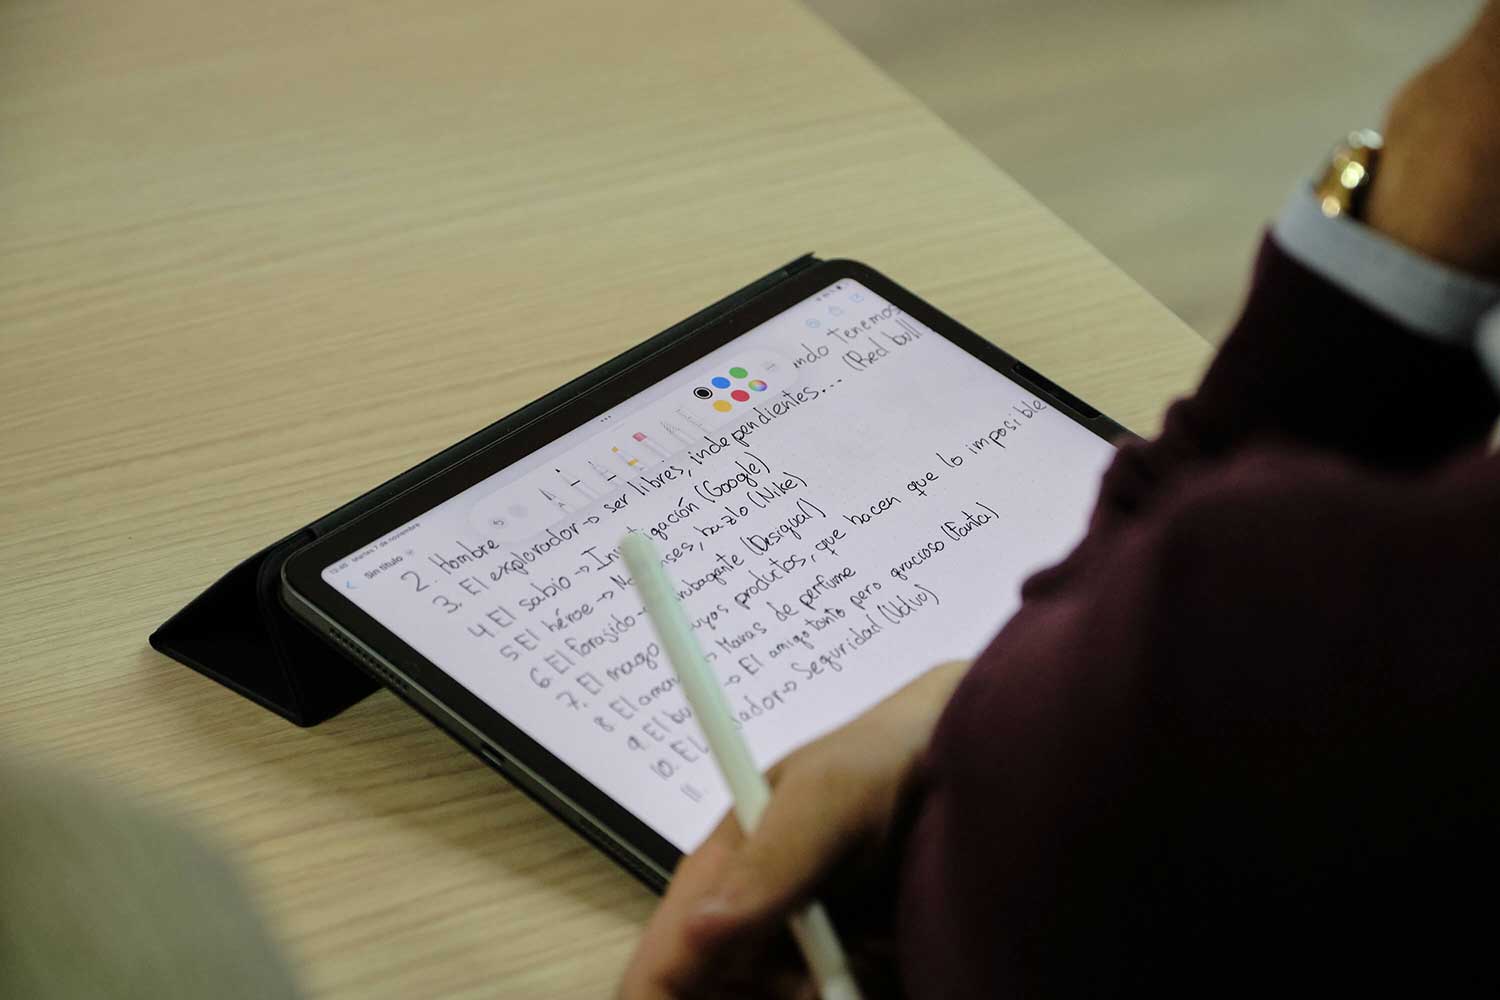 12:48 Martes 7 de noviembre
Sin título
2. Hombre ndo Tenemos
3. El explorador → ser libres, independientes... (Red bull
4 El sabio → In igación (Google)
5 El héroe → No nses, hazlo (Nike)
6 El forajido → bagante (Desigual)
7. El mago uyos productos, que hacen que lo imposible
8 El aman → Maras de perfume
9. El bu → El amigo tonto pero gracioso (Fanta)
10. El ador → Seguridad (Volvo)
11.